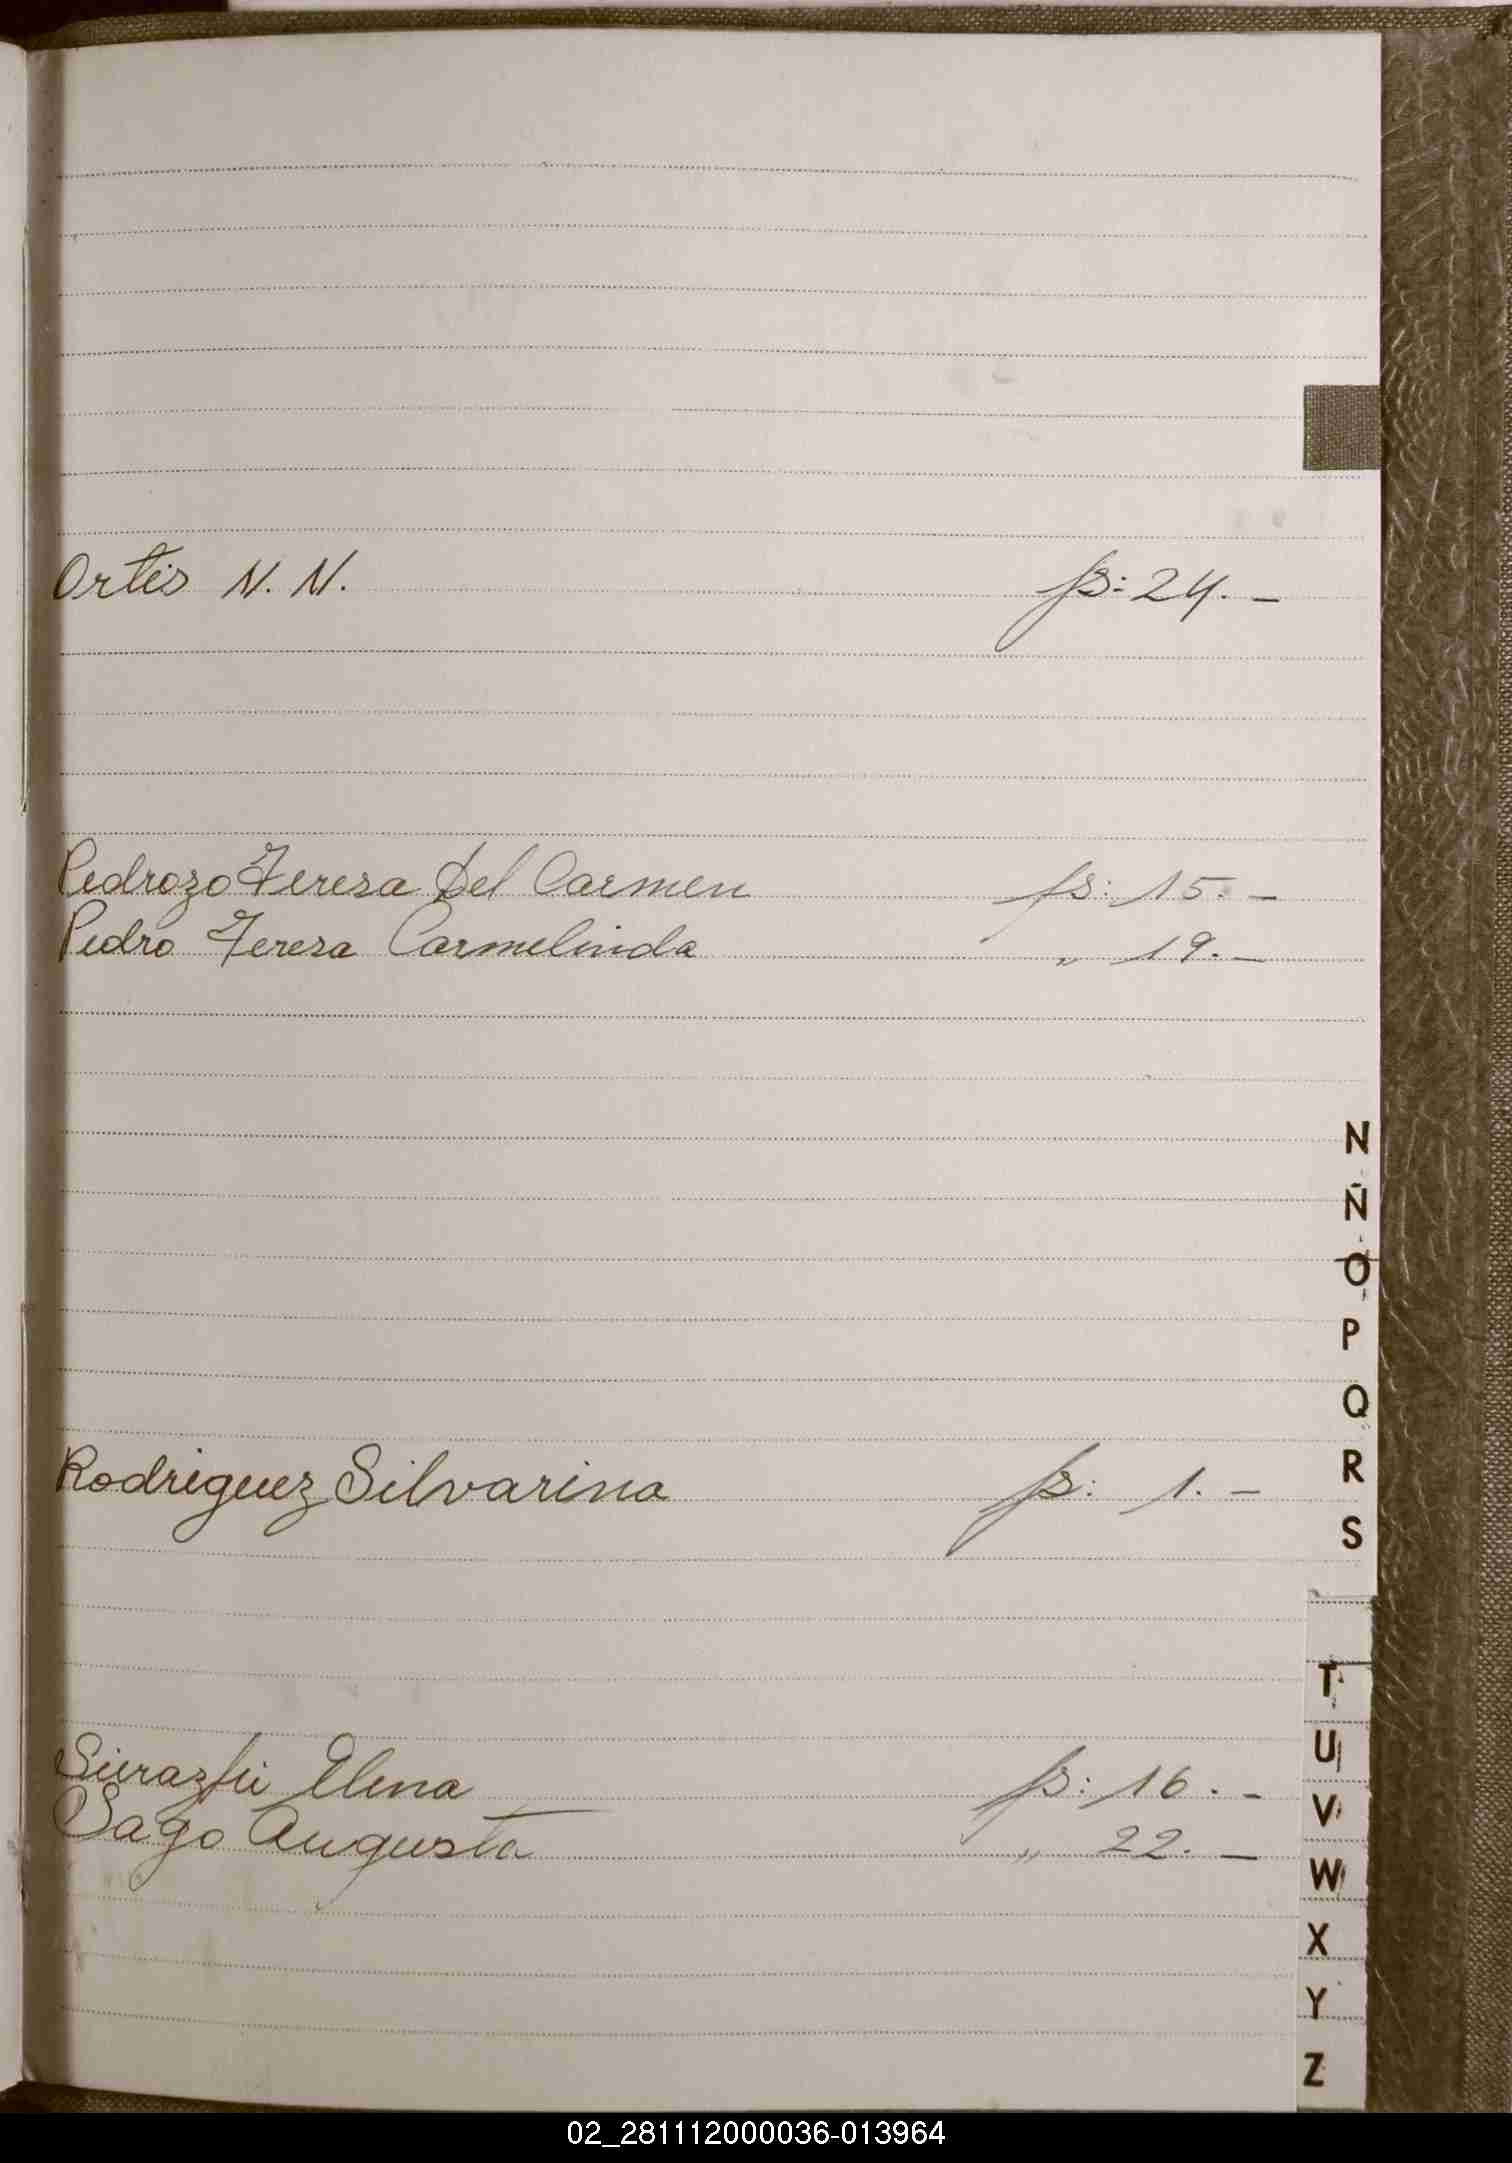 Ortis N. N. fs: 24. —
Pedrozo Teresa Del Carmen fs: 15. —
Pedro Teresa Carmelinda „ 19. —
N
Ñ
O
P
Q
Rodriguez Silvarina fs: 1. —
R
S
T
Elena fs: 16. —
U
V
Sago Augusta „ 22. —
W
X
Y
Z
02_281112000036-013964